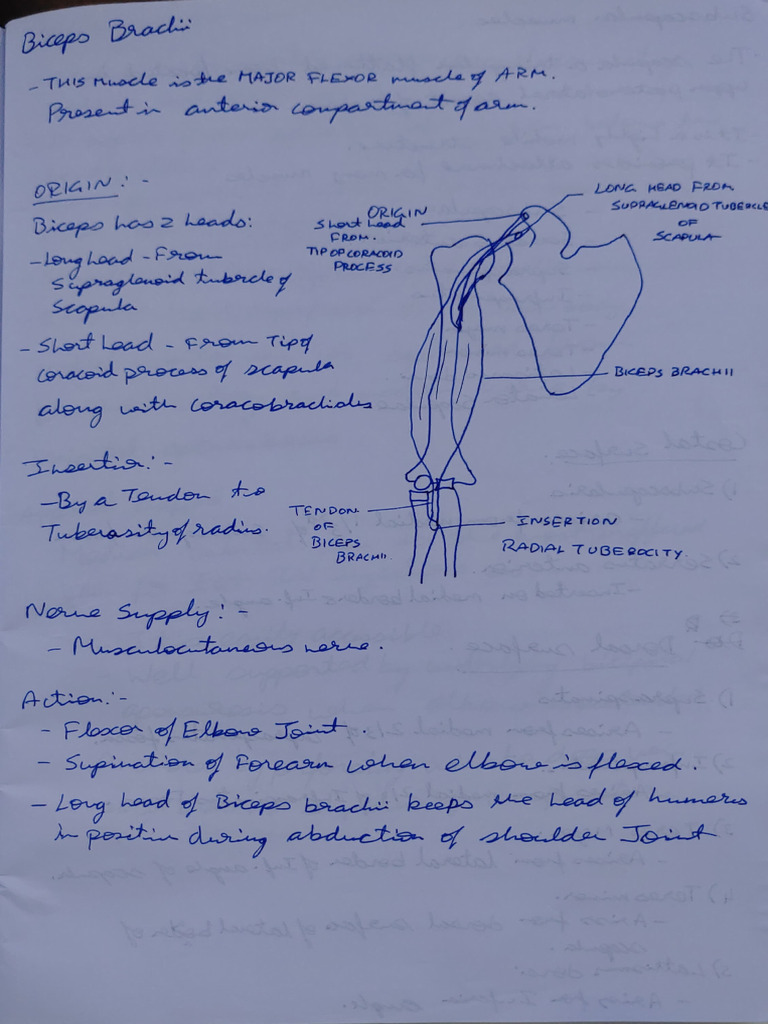 Biceps Brachii
- THIS Muscle is the MAJOR FLEXOR muscle of ARM.
Present in anterior compartment of arm.
ORIGIN:-
Biceps has 2 Heads:
- Long head - From
Supraglenoid tubercle of
Scapula
- Short head - From Tip of
coracoid process of scapula
along with coracobrachiales
Insertion:-
- By a Tendon to
Tuberosity of radius.
ORIGIN
Short head
FROM.
TIP OF CORACOID
PROCESS
LONG HEAD FROM
SUPRAGLENOID TUBERCLE
OF
SCAPULA
BICEPS BRACHII
TENDON
OF
BICEPS
BRACHII.
INSERTION
RADIAL TUBEROCITY.
Nerve Supply:-
- Musculocutaneous nerve.
Action:-
- Flexor of Elbow Joint
- Supination of Forearm when elbow is flexed.
- Long head of Biceps brachii keeps the head of humerus
in position during abduction of shoulder Joint